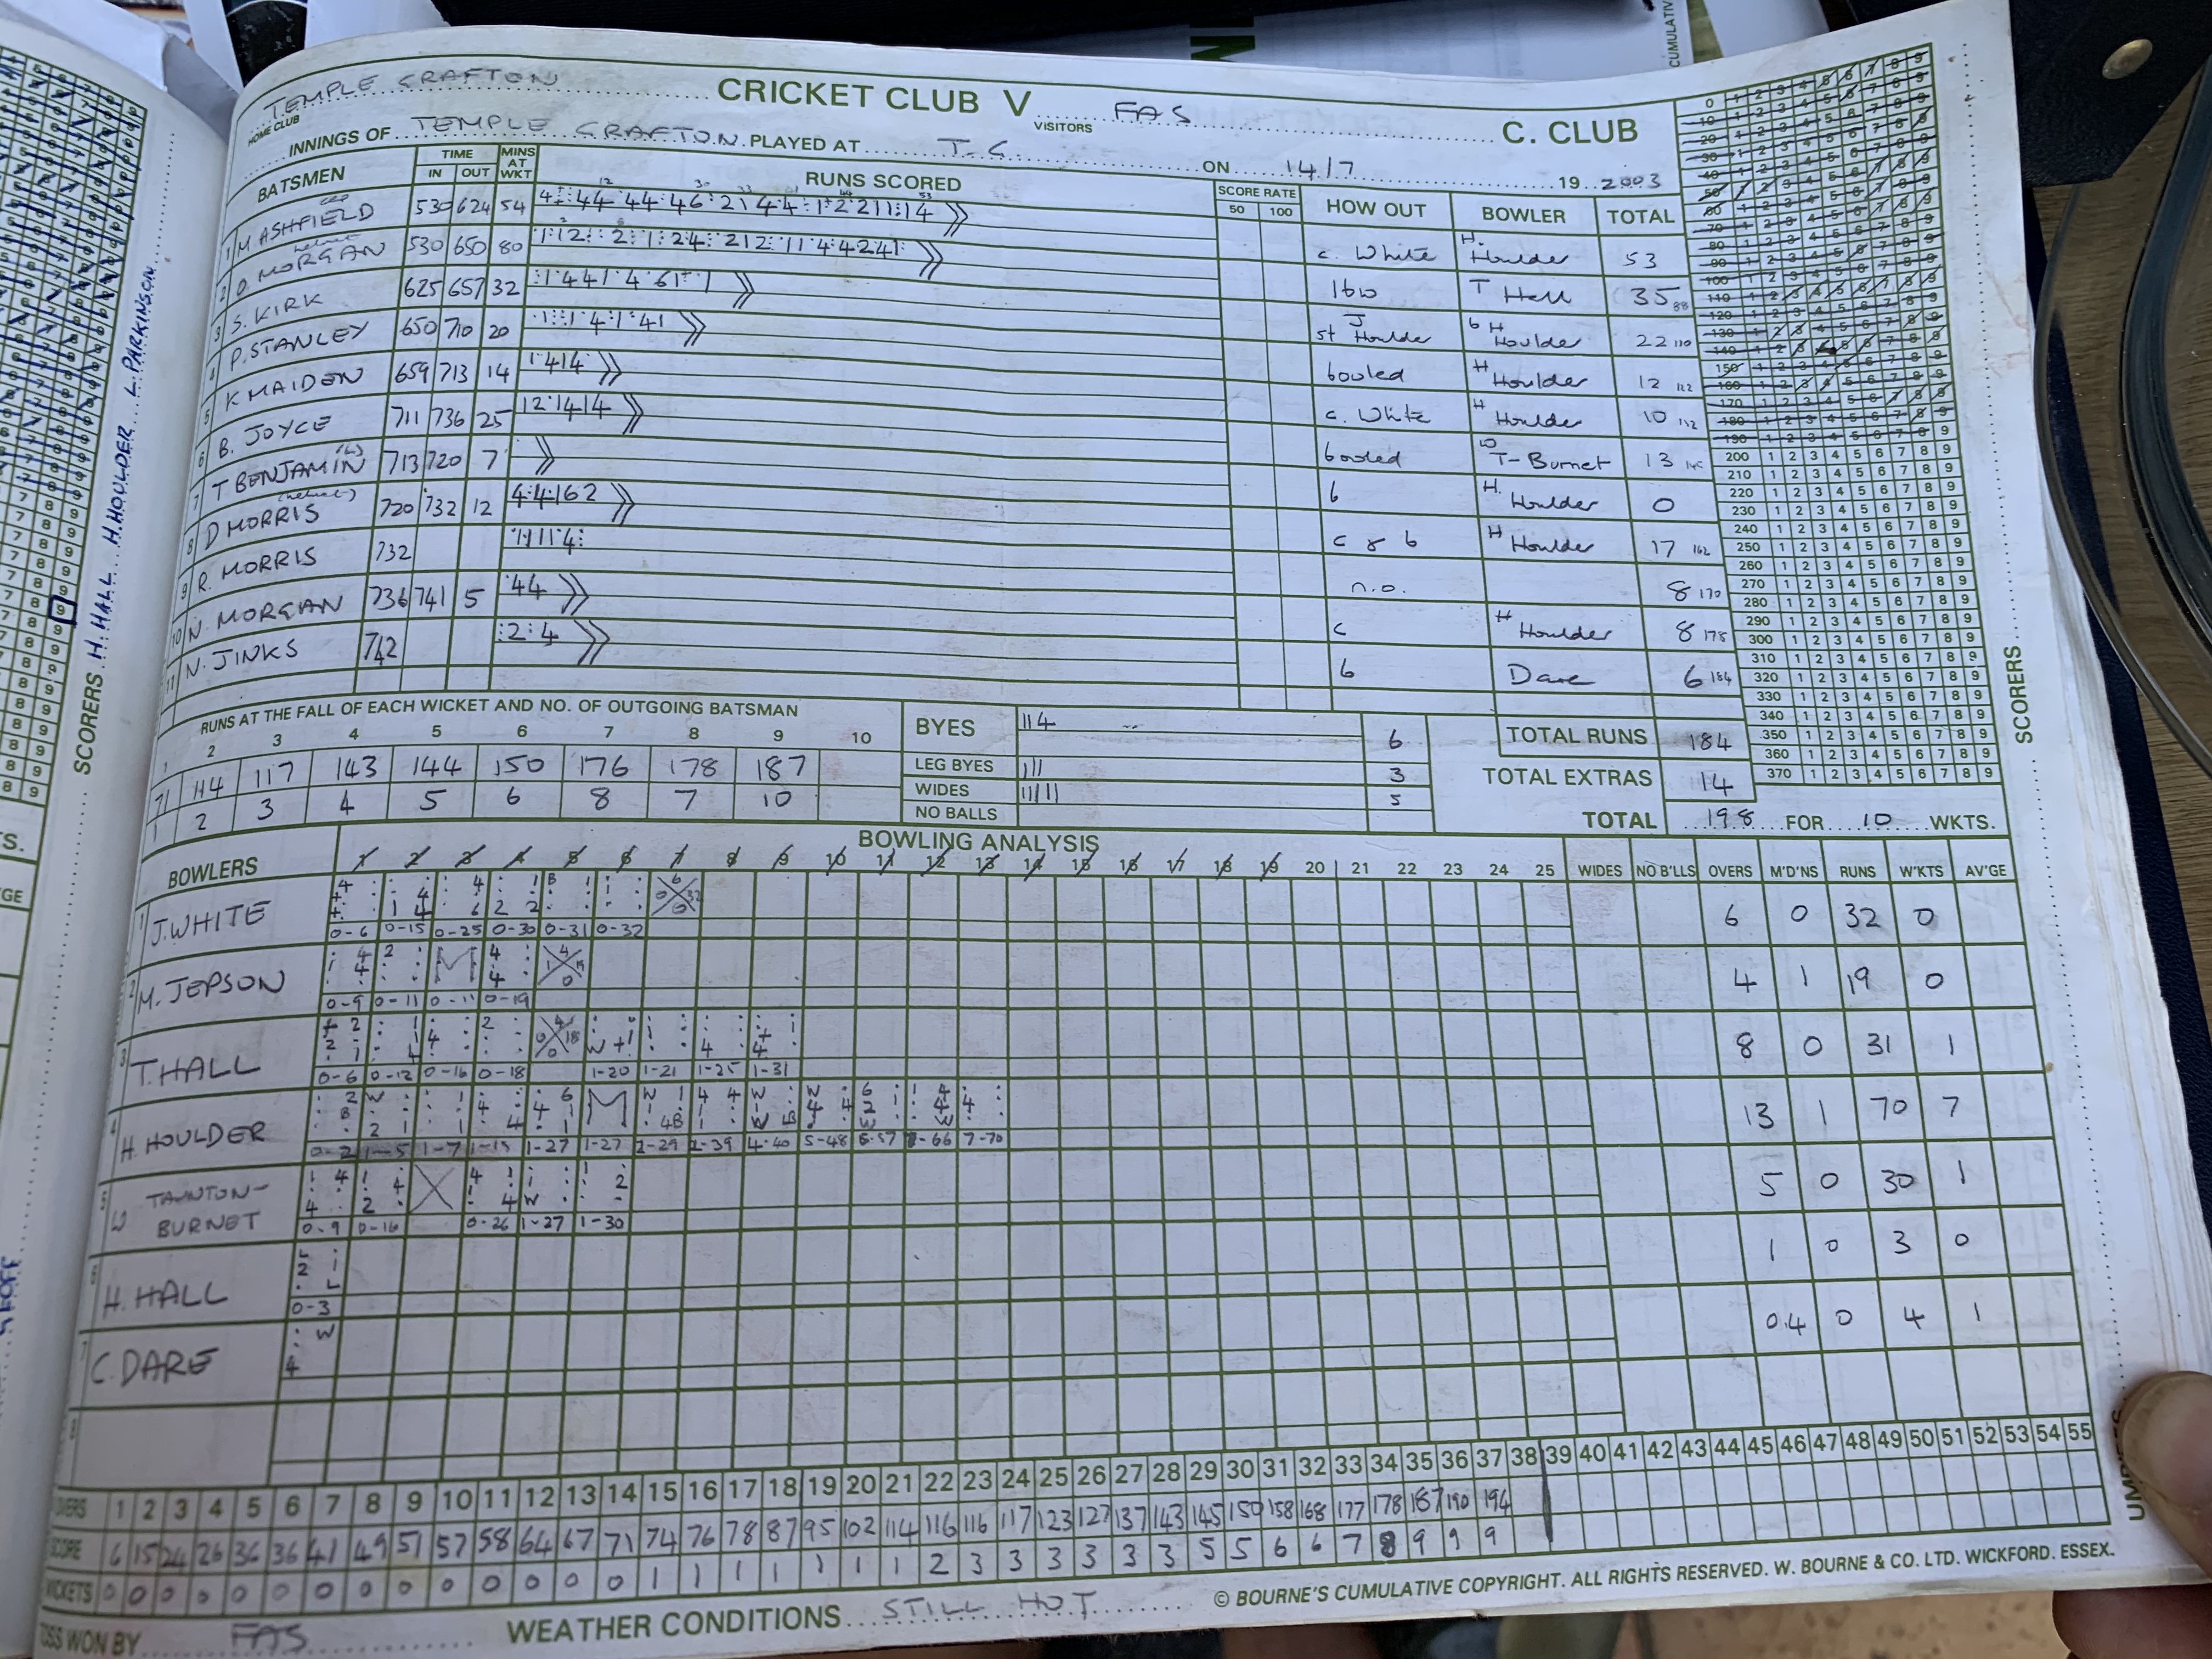 TEMPLE GRAFTON CRICKET CLUB V FAS C. CLUB
HOME CLUB VISITORS
INNINGS OF TEMPLE GRAFTON PLAYED AT T.C. ON 14/7 19 2003
BATSMEN TIME IN OUT MINS AT WKT RUNS SCORED SCORE RATE 50 100 HOW OUT BOWLER TOTAL
1 M. ASHFIELD 530 624 54 c. White H. Houlder 53
2 D. MORGAN 530 650 80 lbw T Hall 35 88
3 S. KIRK 625 657 32 st J Houlder b H Houlder 22 110
4 P. STANLEY 650 710 20 bowled H Houlder 12 122
5 K MAIDEN 659 713 14 1·414 c. White H Houlder 10 132
6 B. JOYCE 711 736 25 12·1414 bowled W T-Burnet 13 145
7 T BENJAMIN 713 720 7 b H. Houlder 0
8 D MORRIS (helmet) 720 732 12 4·4·162 c & b H Houlder 17 162
9 R. MORRIS 732 n.o. 8 170
10 N. MORGAN 736 741 5 ·44 c H Houlder 8 178
11 N. JINKS 742 :2:4 b Dare 6 184
RUNS AT THE FALL OF EACH WICKET AND NO. OF OUTGOING BATSMAN
1 2 3 4 5 6 7 8 9 10
71 114 117 143 144 150 176 178 187
1 2 3 4 5 6 8 7 10
BYES 114 6 TOTAL RUNS 184
LEG BYES 111 3 TOTAL EXTRAS 14
WIDES 5
NO BALLS
TOTAL 198 FOR 10 WKTS.
BOWLING ANALYSIS
BOWLERS 1 2 3 4 5 6 7 8 9 10 11 12 13 14 15 16 17 18 19 20 21 22 23 24 25 WIDES NO B'LLS OVERS M'D'NS RUNS W'KTS AV'GE
1 J. WHITE 0-6 0-15 0-25 0-30 0-31 0-32 6 0 32 0
2 M. JEPSON 0-9 0-11 0-11 0-19 4 1 19 0
3 T. HALL 0-6 0-12 0-16 0-18 1-20 1-21 1-25 1-31 8 0 31 1
4 H. HOULDER 0-2 1-5 1-7 1-15 1-27 1-27 2-29 2-39 4-40 5-48 6-57 7-66 7-70 13 1 70 7
5 W TAUNTON-BURNET 0-9 0-16 0-26 1-27 1-30 5 0 30 1
6 H. HALL 0-3 1 0 3 0
7 C. DARE 0.4 0 4 1
8
OVERS 1 2 3 4 5 6 7 8 9 10 11 12 13 14 15 16 17 18 19 20 21 22 23 24 25 26 27 28 29 30 31 32 33 34 35 36 37 38 39 40 41 42 43 44 45 46 47 48 49 50 51 52 53 54 55
SCORE 6 15 24 26 36 36 41 49 51 57 58 64 67 71 74 76 78 87 95 102 114 116 116 117 123 127 137 143 145 150 158 168 177 178 187 190 194
WICKETS 0 0 0 0 0 0 0 0 0 0 0 0 0 0 1 1 1 1 1 1 1 2 3 3 3 3 3 3 5 5 6 6 7 8 9 9 9
TOSS WON BY FAS WEATHER CONDITIONS STILL HOT
© BOURNE'S CUMULATIVE COPYRIGHT. ALL RIGHTS RESERVED. W. BOURNE & CO. LTD. WICKFORD. ESSEX.
SCORERS
SCORERS H. HALL H. HOULDER L. PARKINSON
CUMULATIV